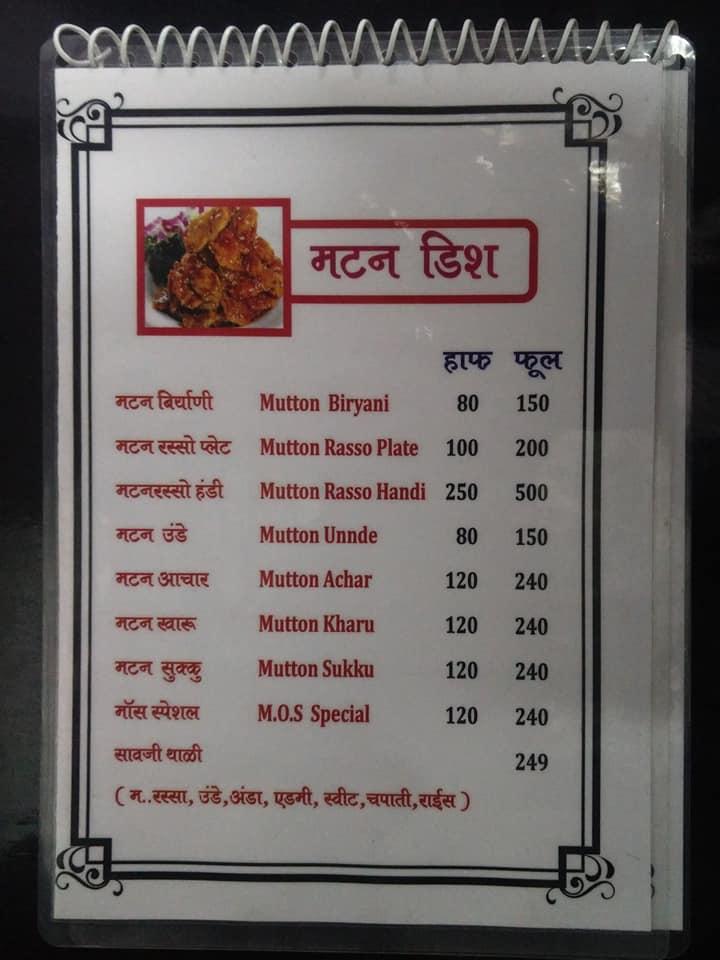 मटन डिश
हाफ फूल
मटन बिर्याणी Mutton Biryani 80 150
मटन रस्सो प्लेट Mutton Rasso Plate 100 200
मटनरस्सो हंडी Mutton Rasso Handi 250 500
मटन उंडे Mutton Unnde 80 150
मटन आचार Mutton Achar 120 240
मटन खारू Mutton Kharu 120 240
मटन सुक्कु Mutton Sukku 120 240
मॉस स्पेशल M.O.S Special 120 240
सावजी थाळी 249
( म..रस्सा, उंडे,अंडा, एडमी, स्वीट,चपाती,राईस )